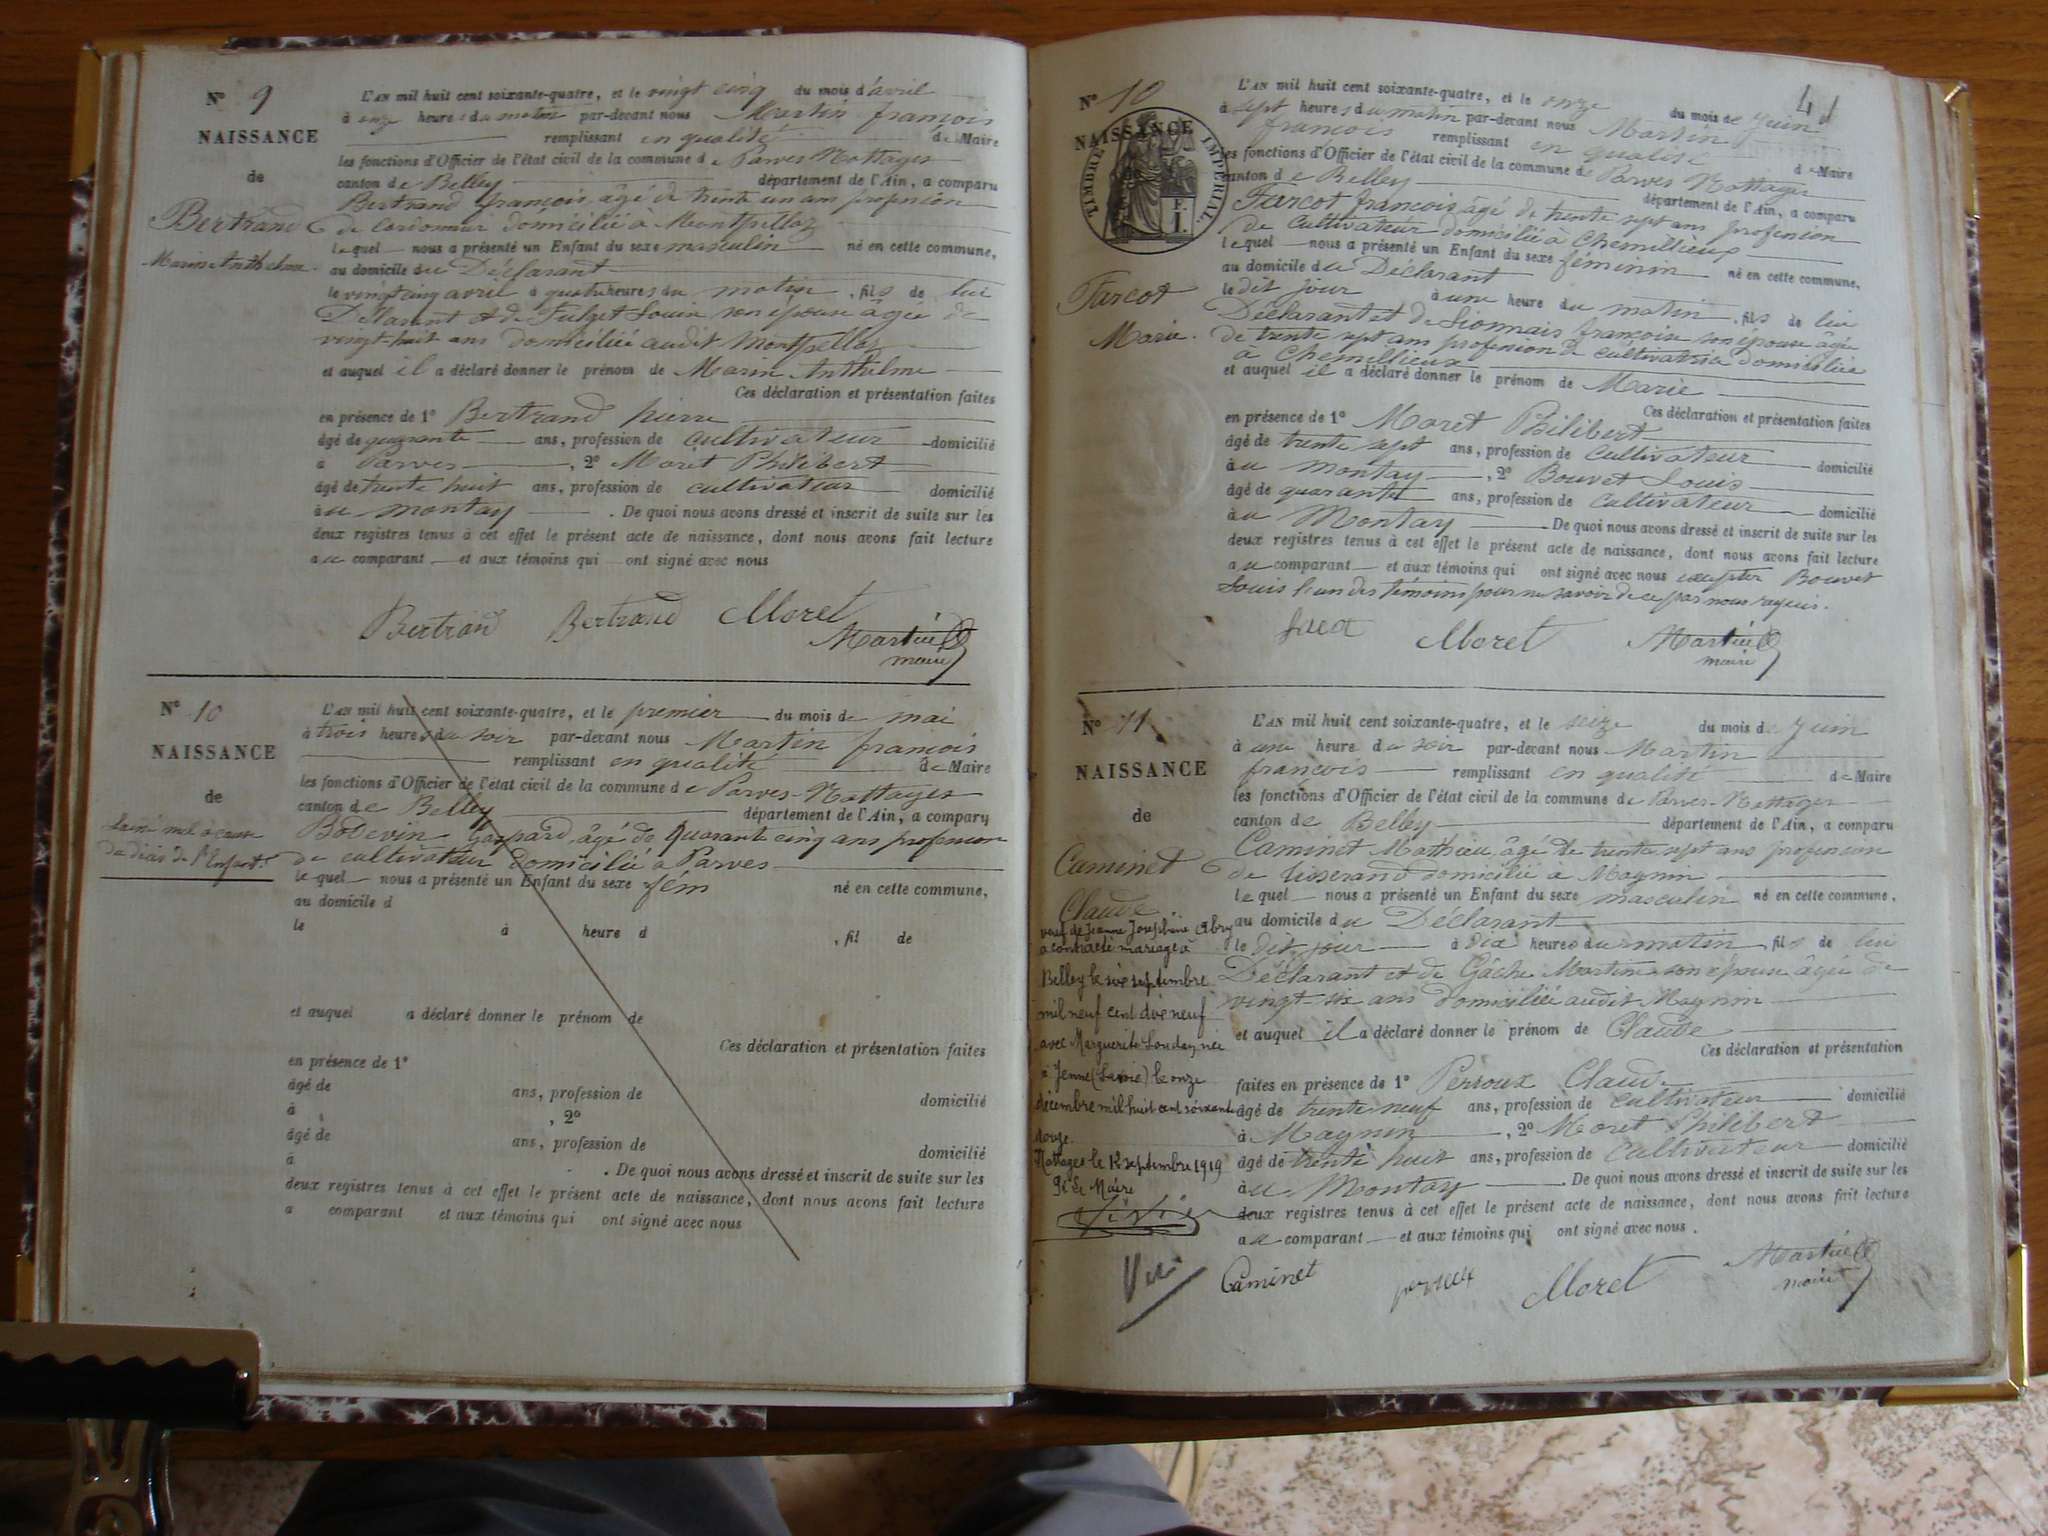 N° 9
NAISSANCE
de
Bertrand
Marin Anthelme.
L'AN mil huit cent soixante-quatre, et le vingt cinq du mois d'avril
à onze heures du matin par-devant nous Martin françois
remplissant en qualité de Maire
les fonctions d'Officier de l'état civil de la commune de Parves Nattages
canton de Belley département de l'Ain, a comparu
Bertrand françois âgé de trente un ans profession
de Cordonnier domicilié à Montpellaz
lequel nous a présenté un Enfant du sexe masculin né en cette commune,
au domicile du Déclarant
le vingt cinq avril à quatre heures du matin, fils de lui
Déclarant et de Louise son épouse âgée de
vingt huit ans domiciliée audit Montpellaz
et auquel il a déclaré donner le prénom de Marin Anthelme
Ces déclaration et présentation faites
en présence de 1° Bertrand pierre
âgé de quarante ans, profession de cultivateur domicilié
à Parves, 2° Moret Philibert
âgé de trente huit ans, profession de cultivateur domicilié
au montay. De quoi nous avons dressé et inscrit de suite sur les
deux registres tenus à cet effet le présent acte de naissance, dont nous avons fait lecture
au comparant et aux témoins qui ont signé avec nous
Bertrand Bertrand Moret
Martin
maire
N° 10
NAISSANCE
de
de l'Enfant.
L'AN mil huit cent soixante-quatre, et le premier du mois de mai
à trois heures du soir par-devant nous Martin françois
remplissant en qualité de Maire
les fonctions d'Officier de l'état civil de la commune de Parves-Nattages
canton de Belley département de l'Ain, a comparu
Bodevin Gaspard, âgé de quarante cinq ans profession
de cultivateur domicilié à Parves
lequel nous a présenté un Enfant du sexe fém né en cette commune,
au domicile d
le à heure d , fil de
et auquel a déclaré donner le prénom de
Ces déclaration et présentation faites
en présence de 1°
âgé de ans, profession de domicilié
à , 2°
âgé de ans, profession de domicilié
à . De quoi nous avons dressé et inscrit de suite sur les
deux registres tenus à cet effet le présent acte de naissance, dont nous avons fait lecture
a comparant et aux témoins qui ont signé avec nous
41
N° 10
NAISSANCE
TIMBRE IMPÉRIAL
F.
1.
Farcot
Marie.
L'AN mil huit cent soixante-quatre, et le onze du mois de Juin
à sept heures du matin par-devant nous Martin
francois remplissant en qualité de Maire
les fonctions d'Officier de l'état civil de la commune de Parves Nattages
canton de Belley département de l'Ain, a comparu
Farcot francois âgé de trente sept ans profession
de Cultivateur domicilié à Chemillieux
lequel nous a présenté un Enfant du sexe féminin né en cette commune,
au domicile du Déclarant
le dit jour à une heure du matin, fils de lui
Déclarant et de Lionnais françoise son épouse âgée
de trente sept ans profession de cultivatrice domiciliée
a Chemillieux
et auquel il a déclaré donner le prénom de Marie
Ces déclaration et présentation faites
en présence de 1° Moret Philibert
âgé de trente sept ans, profession de Cultivateur domicilié
au montay, 2° Bouvet Louis
âgé de quarante ans, profession de Cultivateur domicilié
au Montay. De quoi nous avons dressé et inscrit de suite sur les
deux registres tenus à cet effet le présent acte de naissance, dont nous avons fait lecture
au comparant et aux témoins qui ont signé avec nous excepter Bouvet
Louis l'un des témoins pour ne savoir de ce par nous requis.
Moret Martin
maire
N° 11
NAISSANCE
de
Caminet
Claude
veuf de Jeanne Josephine Abry
a contracté mariage à
Belley le six septembre
mil neuf cent dix neuf
avec Marguerite née
à Yenne (Savoie) le onze
décembre mil huit cent soixante
douze.
Nattages le 12 septembre 1919
Le Maire
L'AN mil huit cent soixante-quatre, et le seize du mois de Juin
à une heure du soir par-devant nous Martin
francois remplissant en qualité de Maire
les fonctions d'Officier de l'état civil de la commune de Parves-Nattages
canton de Belley département de l'Ain, a comparu
Caminet Mathieu âgé de trente sept ans profession
de Tisserand domicilié a Magnin
lequel nous a présenté un Enfant du sexe masculin né en cette commune,
au domicile du Déclarant
le dit jour à dix heures du matin, fils de lui
Déclarant et de Gâche Martine son épouse âgée de
vingt-six ans domiciliée audit Magnin
et auquel il a déclaré donner le prénom de Claude
Ces déclaration et présentation
faites en présence de 1° Perroux Claude
âgé de trente neuf ans, profession de cultivateur domicilié
à Magnin, 2° Moret Philibert
âgé de trente huit ans, profession de Cultivateur domicilié
au Montay. De quoi nous avons dressé et inscrit de suite sur les
deux registres tenus à cet effet le présent acte de naissance, dont nous avons fait lecture
au comparant et aux témoins qui ont signé avec nous.
Caminet perroux Moret Martin
maire